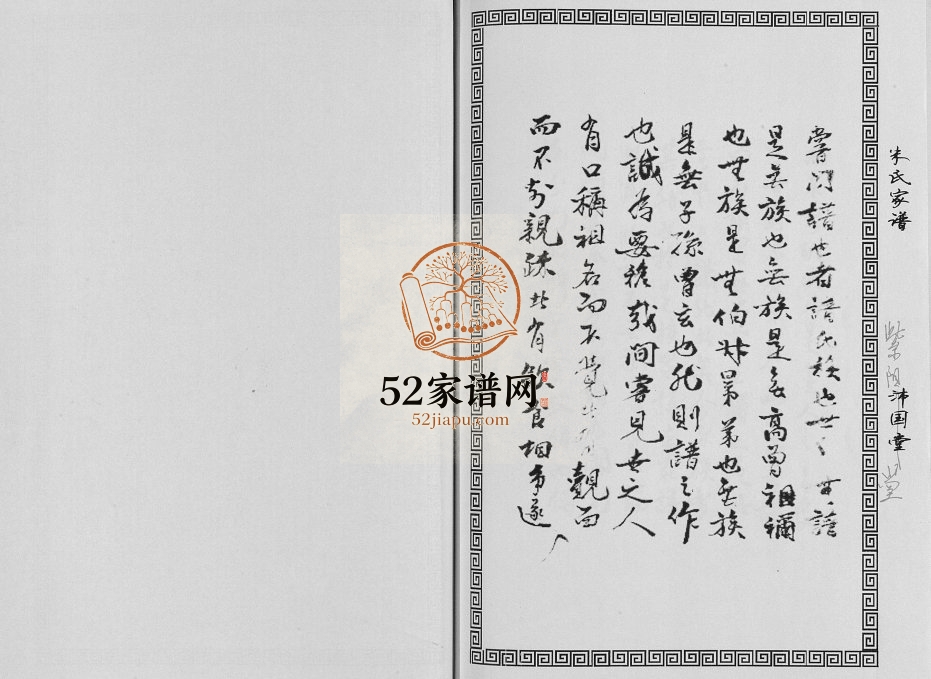 朱氏家谱
紫阳 沛国堂
堂
嘗聞譜也者譜氏族也世無譜
是無族也無族是無高曾祖禰
也無族是無伯叔昆弟也無族
是無子孫曾玄也然則譜之作
也誠為要務哉間嘗見世之人
有口稱祖名而不覺覩而
而不知親疎者飲食相爭遂
52家谱网
52jiapu.com